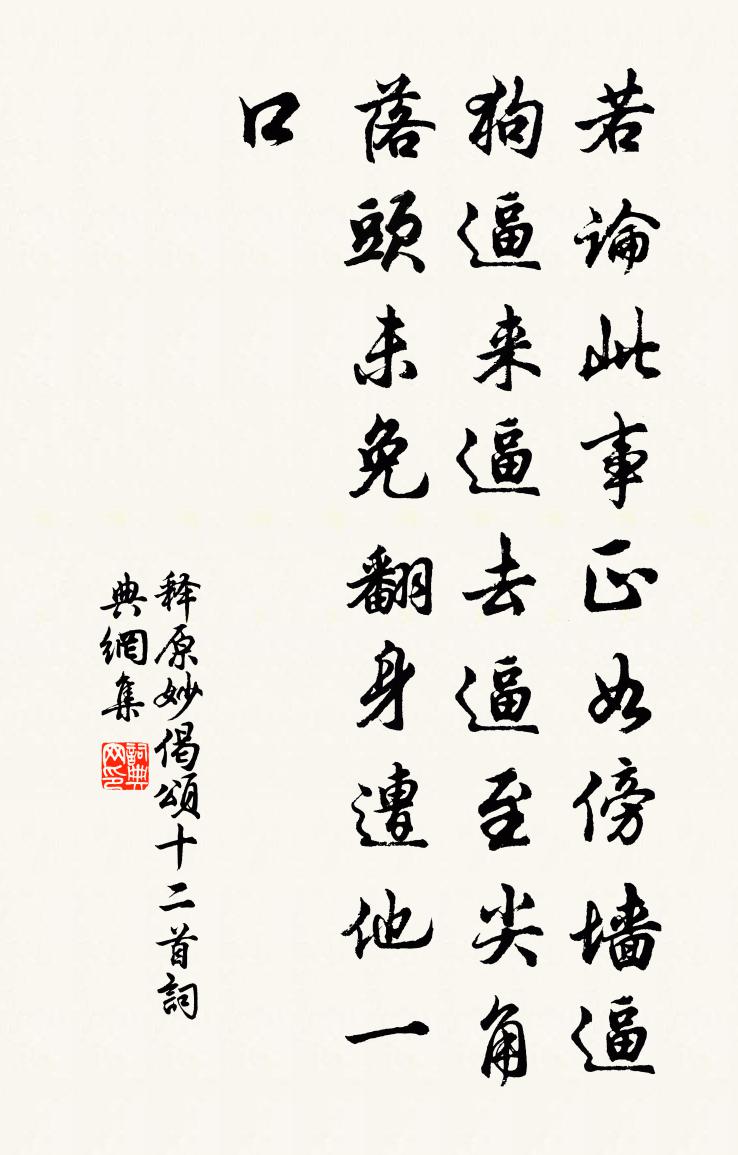 若論此事正如傍墙逼
狗逼来逼去逼至尖角
落頭未免翻身遭他一
口
释原妙偈頌十二首詞
典網集
詞典
网印